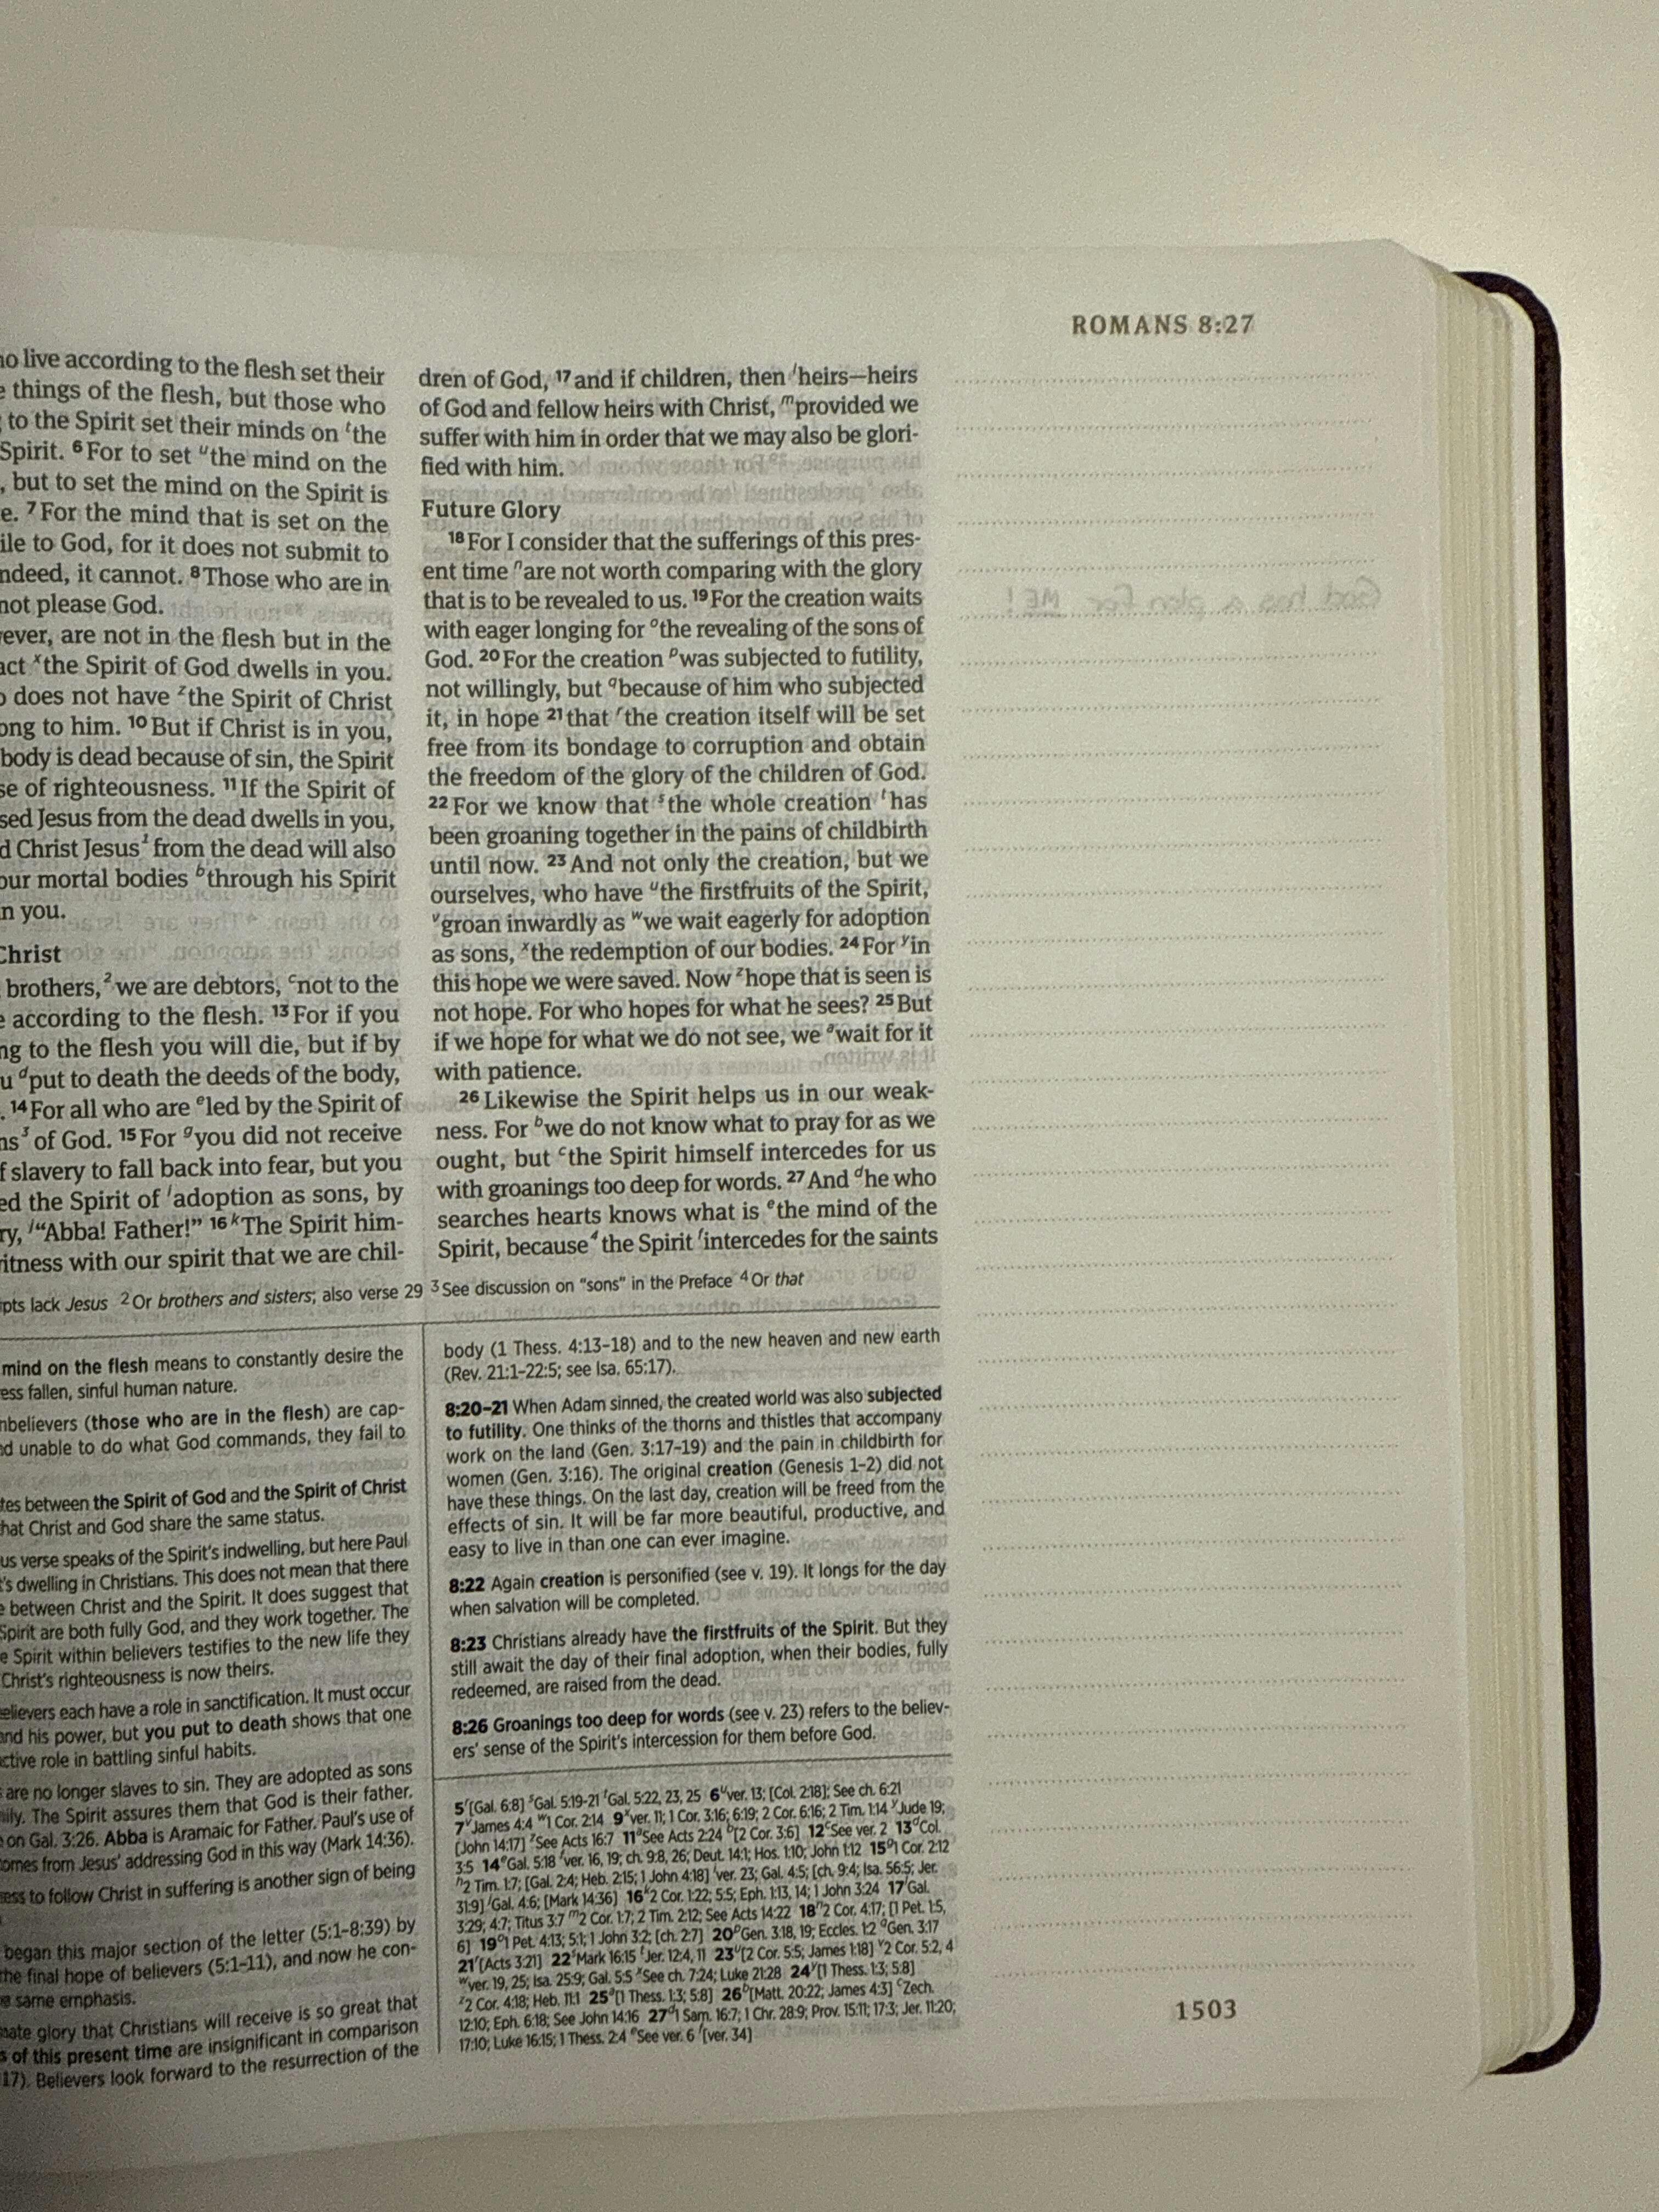 ROMANS 8:27
no live according to the flesh set their
things of the flesh, but those who
to the Spirit set their minds on ᵗthe
Spirit. ⁶For to set ᵘthe mind on the
, but to set the mind on the Spirit is
e. ⁷For the mind that is set on the
ile to God, for it does not submit to
ndeed, it cannot. ⁸Those who are in
not please God.
ever, are not in the flesh but in the
act ˣthe Spirit of God dwells in you.
does not have ᶻthe Spirit of Christ
ong to him. ¹⁰But if Christ is in you,
body is dead because of sin, the Spirit
se of righteousness. ¹¹If the Spirit of
sed Jesus from the dead dwells in you,
d Christ Jesus¹ from the dead will also
our mortal bodies ᵇthrough his Spirit
n you.
Christ
brothers,² we are debtors, ᶜnot to the
e according to the flesh. ¹³For if you
ng to the flesh you will die, but if by
u ᵈput to death the deeds of the body,
. ¹⁴For all who are ᵉled by the Spirit of
ns³ of God. ¹⁵For ᵍyou did not receive
f slavery to fall back into fear, but you
ed the Spirit of ⁱadoption as sons, by
ry, ʲ“Abba! Father!” ¹⁶ᵏThe Spirit him-
itness with our spirit that we are chil-
dren of God, ¹⁷and if children, then ˡheirs—heirs
of God and fellow heirs with Christ, ᵐprovided we
suffer with him in order that we may also be glori-
fied with him.
Future Glory
¹⁸For I consider that the sufferings of this pres-
ent time ⁿare not worth comparing with the glory
that is to be revealed to us. ¹⁹For the creation waits
with eager longing for ᵒthe revealing of the sons of
God. ²⁰For the creation ᵖwas subjected to futility,
not willingly, but qbecause of him who subjected
it, in hope ²¹that ʳthe creation itself will be set
free from its bondage to corruption and obtain
the freedom of the glory of the children of God.
²²For we know that ˢthe whole creation ᵗhas
been groaning together in the pains of childbirth
until now. ²³And not only the creation, but we
ourselves, who have ᵘthe firstfruits of the Spirit,
ᵛgroan inwardly as ʷwe wait eagerly for adoption
as sons, ˣthe redemption of our bodies. ²⁴For ʸin
this hope we were saved. Now ᶻhope that is seen is
not hope. For who hopes for what he sees? ²⁵But
if we hope for what we do not see, we ᵃwait for it
with patience.
²⁶Likewise the Spirit helps us in our weak-
ness. For ᵇwe do not know what to pray for as we
ought, but ᶜthe Spirit himself intercedes for us
with groanings too deep for words. ²⁷And ᵈhe who
searches hearts knows what is ᵉthe mind of the
Spirit, because⁴ the Spirit ᶠintercedes for the saints
God has a plan for ME!
ipts lack Jesus ²Or brothers and sisters; also verse 29 ³See discussion on “sons” in the Preface ⁴Or that
mind on the flesh means to constantly desire the
ess fallen, sinful human nature.
nbelievers (those who are in the flesh) are cap-
nd unable to do what God commands, they fail to
tes between the Spirit of God and the Spirit of Christ
hat Christ and God share the same status.
us verse speaks of the Spirit’s indwelling, but here Paul
t’s dwelling in Christians. This does not mean that there
e between Christ and the Spirit. It does suggest that
Spirit are both fully God, and they work together. The
e Spirit within believers testifies to the new life they
Christ’s righteousness is now theirs.
elievers each have a role in sanctification. It must occur
and his power, but you put to death shows that one
active role in battling sinful habits.
are no longer slaves to sin. They are adopted as sons
mily. The Spirit assures them that God is their father.
on Gal. 3:26. Abba is Aramaic for Father. Paul’s use of
omes from Jesus’ addressing God in this way (Mark 14:36).
ess to follow Christ in suffering is another sign of being
began this major section of the letter (5:1–8:39) by
the final hope of believers (5:1–11), and now he con-
same emphasis.
mate glory that Christians will receive is so great that
s of this present time are insignificant in comparison
17). Believers look forward to the resurrection of the
body (1 Thess. 4:13–18) and to the new heaven and new earth
(Rev. 21:1–22:5; see Isa. 65:17).
8:20–21 When Adam sinned, the created world was also subjected
to futility. One thinks of the thorns and thistles that accompany
work on the land (Gen. 3:17–19) and the pain in childbirth for
women (Gen. 3:16). The original creation (Genesis 1–2) did not
have these things. On the last day, creation will be freed from the
effects of sin. It will be far more beautiful, productive, and
easy to live in than one can ever imagine.
8:22 Again creation is personified (see v. 19). It longs for the day
when salvation will be completed.
8:23 Christians already have the firstfruits of the Spirit. But they
still await the day of their final adoption, when their bodies, fully
redeemed, are raised from the dead.
8:26 Groanings too deep for words (see v. 23) refers to the believ-
ers’ sense of the Spirit’s intercession for them before God.
5ʳ[Gal. 6:8] ˢGal. 5:19-21 ᵗGal. 5:22, 23, 25 6ᵘver. 13; [Col. 2:18]; See ch. 6:21
7ᵛJames 4:4 ʷ1 Cor. 2:14 9ˣver. 11; 1 Cor. 3:16; 6:19; 2 Cor. 6:16; 2 Tim. 1:14 ʸJude 19;
[John 14:17] ᶻSee Acts 16:7 11ᵃSee Acts 2:24 ᵇ[2 Cor. 3:6] 12ᶜSee ver. 2 13ᵈCol.
3:5 14ᵉGal. 5:18 ᶠver. 16, 19; ch. 9:8, 26; Deut. 14:1; Hos. 1:10; John 1:12 15ᵍ1 Cor. 2:12
ʰ2 Tim. 1:7; [Gal. 2:4; Heb. 2:15; 1 John 4:18] ⁱver. 23; Gal. 4:5; [ch. 9:4; Isa. 56:5; Jer.
31:9] ʲGal. 4:6; [Mark 14:36] 16ᵏ2 Cor. 1:22; 5:5; Eph. 1:13, 14; 1 John 3:24 17ˡGal.
3:29; 4:7; Titus 3:7 ᵐ2 Cor. 1:7; 2 Tim. 2:12; See Acts 14:22 18ⁿ2 Cor. 4:17; [1 Pet. 1:5,
6] 19ᵒ1 Pet. 4:13; 5:1; 1 John 3:2; [ch. 2:7] 20ᵖGen. 3:18, 19; Eccles. 1:2 qGen. 3:17
21ʳ[Acts 3:21] 22ˢMark 16:15 ᵗJer. 12:4, 11 23ᵘ[2 Cor. 5:5; James 1:18] ᵛ2 Cor. 5:2, 4
ʷver. 19, 25; Isa. 25:9; Gal. 5:5 ˣSee ch. 7:24; Luke 21:28 24ʸ[1 Thess. 1:3; 5:8]
ᶻ2 Cor. 4:18; Heb. 11:1 25ᵃ[1 Thess. 1:3; 5:8] 26ᵇ[Matt. 20:22; James 4:3] ᶜZech.
12:10; Eph. 6:18; See John 14:16 27ᵈ1 Sam. 16:7; 1 Chr. 28:9; Prov. 15:11; 17:3; Jer. 11:20;
17:10; Luke 16:15; 1 Thess. 2:4 ᵉSee ver. 6 ᶠ[ver. 34]
1503